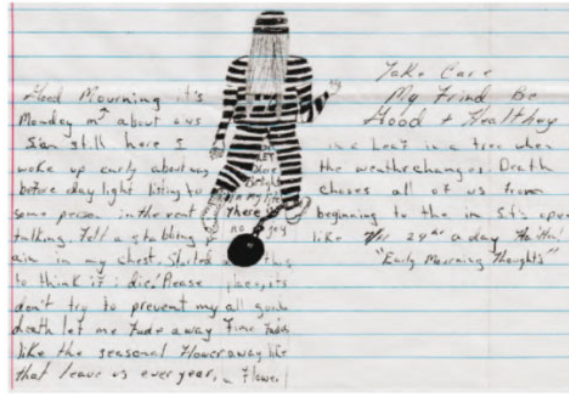 Good Mourning it's
Monday m⁵ about
Sian still here I
woke up early about
before day light listing to
some person in the vent
talking. Fell a stabbing p
ain in my chest. Started
to think if i die! Please
don't try to prevent my
death let me fade away
like the seasonal flower
that leave us ever year.
there
no joy
all good
Time fades
away like
a flower
Take Care
My Frind Be
Good + Healthey
in a Leaf in a tree when
the weather changes Death
chases all of us from
beginning to the in S.t's open
like 24 hr a day Ha!Ha!
"Early Mourning Thoughts"